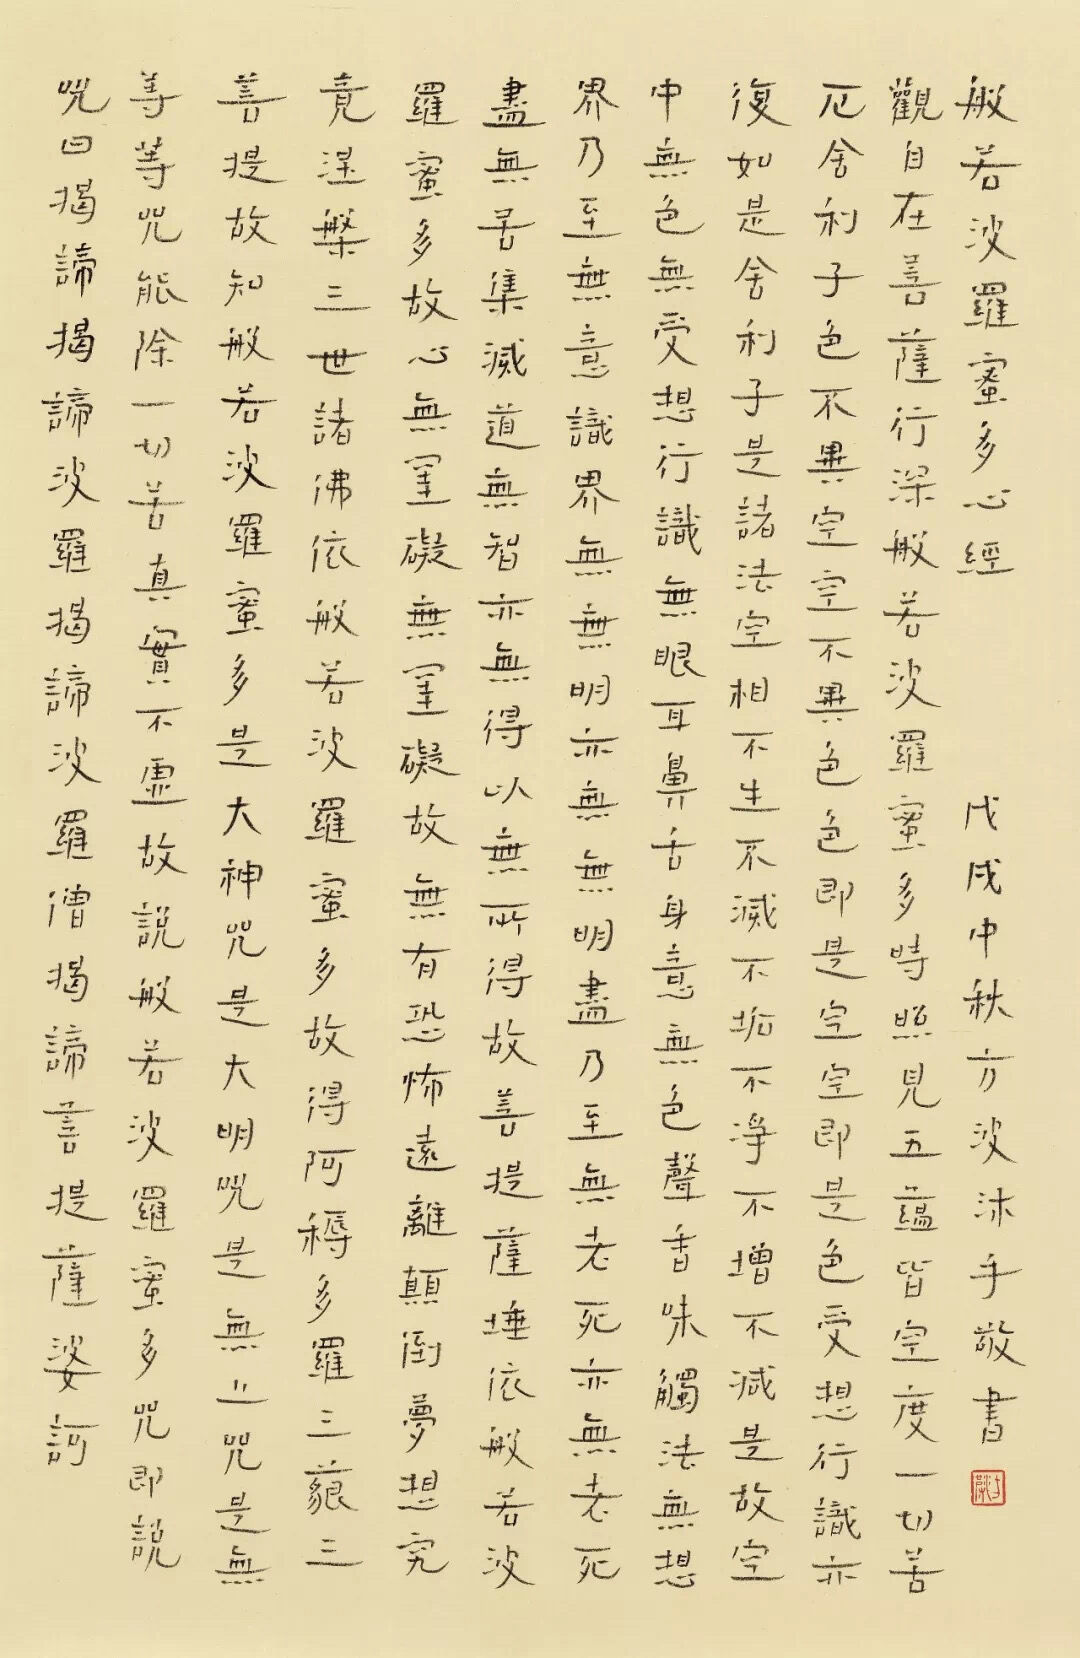 般若波羅蜜多心經 戊戌中秋方波沐手敬書
觀自在菩薩行深般若波羅蜜多時照見五蘊皆空度一切苦
厄舍利子色不異空空不異色色即是空空即是色受想行識亦
復如是舍利子是諸法空相不生不滅不垢不淨不增不減是故空
中無色無受想行識無眼耳鼻舌身意無色聲香味觸法無想
界乃至無意識界無無明亦無無明盡乃至無老死亦無老死
盡無苦集滅道無智亦無得以無所得故菩提薩埵依般若波
羅蜜多故心無罣礙無罣礙故無有恐怖遠離顛倒夢想究
竟涅槃三世諸佛依般若波羅蜜多故得阿耨多羅三藐三
菩提故知般若波羅蜜多是大神咒是大明咒是無上咒是無
等等咒能除一切苦真實不虛故說般若波羅蜜多咒即說
咒曰揭諦揭諦波羅揭諦波羅僧揭諦菩提薩婆訶